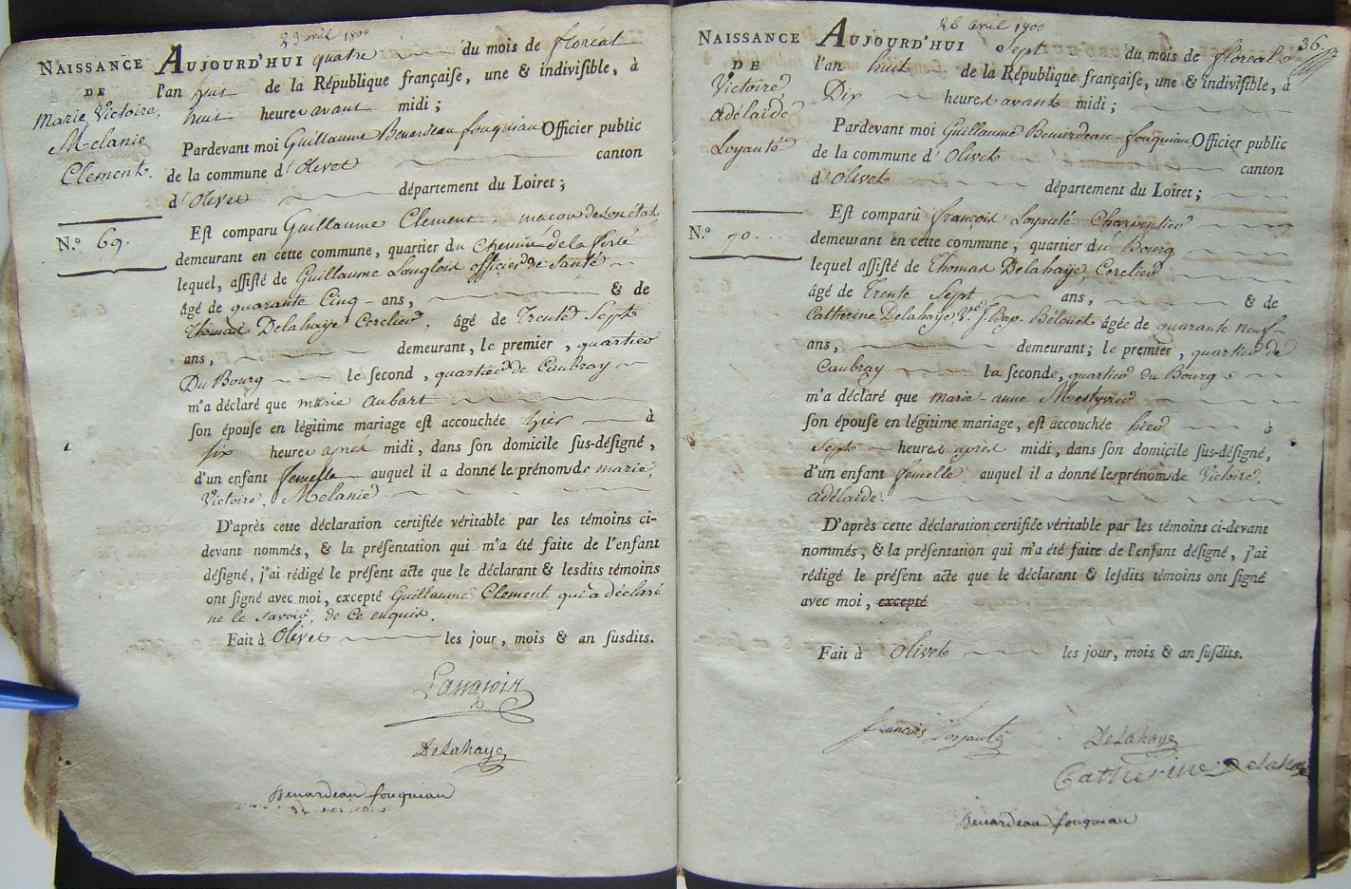 avril 1800
NAISSANCE AUJOURD'HUI quatre du mois de floréal
DE l'an huit de la République française, une & indivisible, à
Marie, Victoire, huit heures avant midi;
Melanie Pardevant moi Guillaume Benardeau fouqueau Officier public
de la commune d'Olivet canton
Clement. d'Olivet département du Loiret;
N.º 69. Est comparu Guillaume Clement maçon de son état
demeurant en cette commune, quartier du Chemin de la ferté
lequel, assisté de Guillaume Langlois officier de Santé
âgé de quarante Cinq ans, & de
Thomas Delahaye Cerclier, âgé de Trente Sept
ans, demeurant, le premier, quartier
Du Bourg le second, quartier de Caubray
m'a déclaré que marie aubart
son épouse en légitime mariage est accouchée hier à
six heures après midi, dans son domicile sus-désigné,
d'un enfant femelle auquel il a donné le prénoms de marie,
Victoire, Melanie
D'après cette déclaration certifiée véritable par les témoins ci-
devant nommés, & la présentation qui m'a été faite de l'enfant
désigné, j'ai rédigé le présent acte que le déclarant & lesdits témoins
ont signé avec moi, excepté Guillaume Clement qui a déclaré
ne le savoir, de ce enquis.
Fait à Olivet les jour, mois & an susdits.
Delahaye
Benardeau fouqueau
26 avril 1800
36
NAISSANCE AUJOURD'HUI Sept du mois de floreal
DE l'an huit de la République française, une & indivisible, à
Victoire Dix heures avant midi;
adélaide Pardevant moi Guillaume Benardeau fouqueau Officier public
Loyauté de la commune d'Olivet canton
d'Olivet département du Loiret;
N.º 70. Est comparu françois Loyauté Charpentier
demeurant en cette commune, quartier du Bourg
lequel assisté de Thomas Delahaye, Cerclier
âgé de Trente Sept ans, & de
Catherine Delahaye, V.e Bélouet âgée de quarante neuf
ans, demeurant; le premier, quartier de
Caubray la seconde, quartier du Bourg
m'a déclaré que marie-anne
son épouse en légitime mariage, est accouchée hier à
sept heures après midi, dans son domicile sus-désigné,
d'un enfant femelle auquel il a donné les prénoms de Victoire,
adelaide.
D'après cette déclaration certifiée véritable par les témoins ci-devant
nommés, & la présentation qui m'a été faite de l'enfant désigné, j'ai
rédigé le présent acte que le déclarant & lesdits témoins ont signé
avec moi, excepté
Fait à Olivet les jour, mois & an susdits.
francois Loyauté
Delahaye
Catherine Delahaye
Benardeau fouqueau